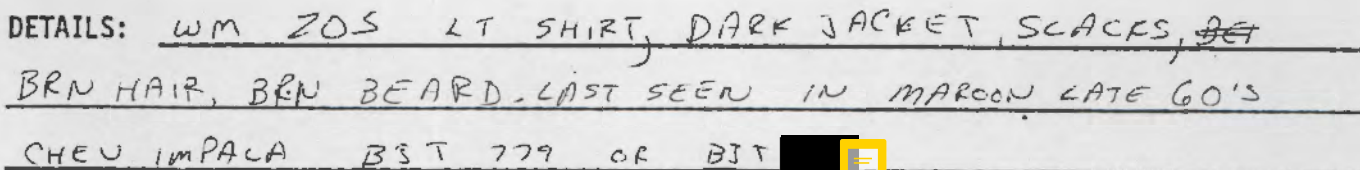 DETAILS: WM 20S LT SHIRT, DARK JACKET, SLACKS,
BRN HAIR, BRN BEARD. LAST SEEN IN MAROON LATE 60'S
CHEV IMPALA BJT 779 OR BJT